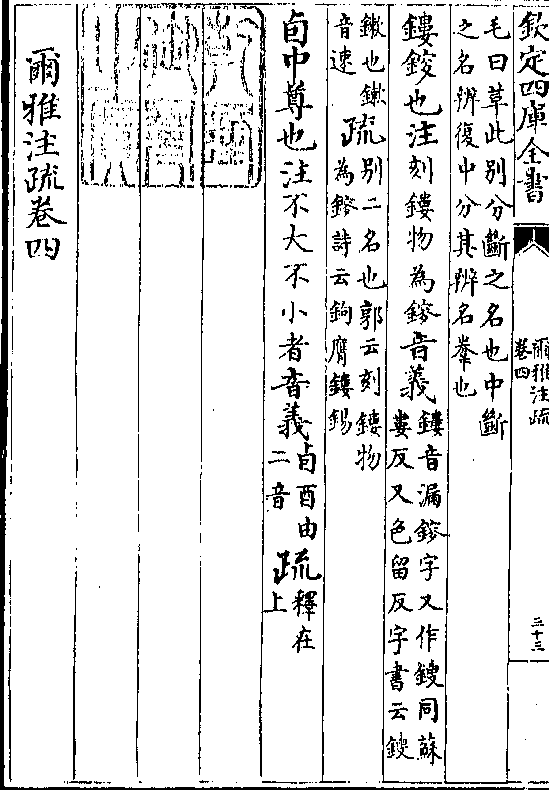 欽定四庫全書
爾雅注疏
卷四
三十三
毛曰草此别分斷之名也中斷
之名辨復中分其辨名鞏也
鏤鎪也注刻鏤物為鎪音義鏤音漏鎪字又作鎪同蘇
婁反又色留反字書云鎪
鏉也鏉
音速
疏别二名也郭云刻鏤物
為鎪詩云鉤膺鏤鍚
卣中尊也注不大不小者音義卣酉由
二音
疏釋在
上
爾雅注疏卷四